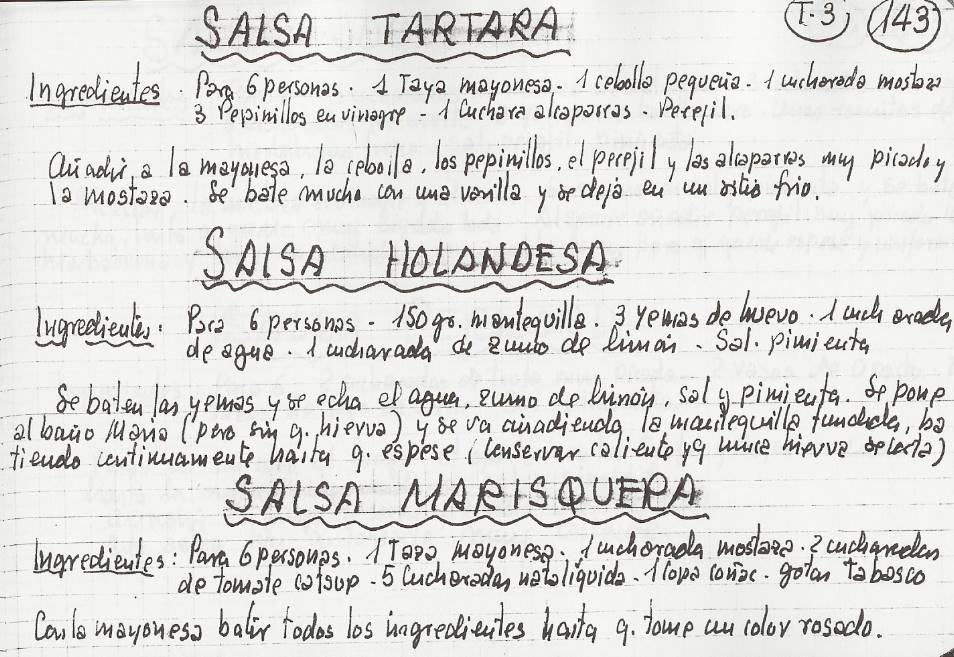 SALSA TARTARA
T.3 143
Ingredientes. Para 6 personas. 1 Taza mayonesa. 1 cebolla pequeña. 1 cucharada mostaza
3 Pepinillos en vinagre - 1 Cuchara alcaparras Perejil.
Añadir a la mayonesa, la cebolla, los pepinillos, el perejil y las alcaparras muy picado y
la mostaza. Se bate mucho con una varilla y se deja en un sitio frio.
SALSA HOLANDESA.
Ingredientes: Para 6 personas - 150 gr. mantequilla. 3 yemas de huevo. 1 cucharada
de agua. 1 cucharada de zumo de limón - Sal. pimienta
Se baten las yemas y se echa el agua, zumo de limón, sal y pimienta. Se pone
al baño Maria (pero sin q. hierva) y se va añadiendo la mantequilla fundida, ba
tiendo continuamente hasta q. espese (Conservar caliente y q nunca hierva
SALSA MARISQUERA
Ingredientes: Para 6 personas. 1 Taza mayonesa. 1 cucharada mostaza. 2 cucharadas
de tomate catsup - 5 Cucharadas nata líquida - 1 Copa coñac - gotas tabasco
Con la mayonesa batir todos los ingredientes hasta q. tome un color rosado.